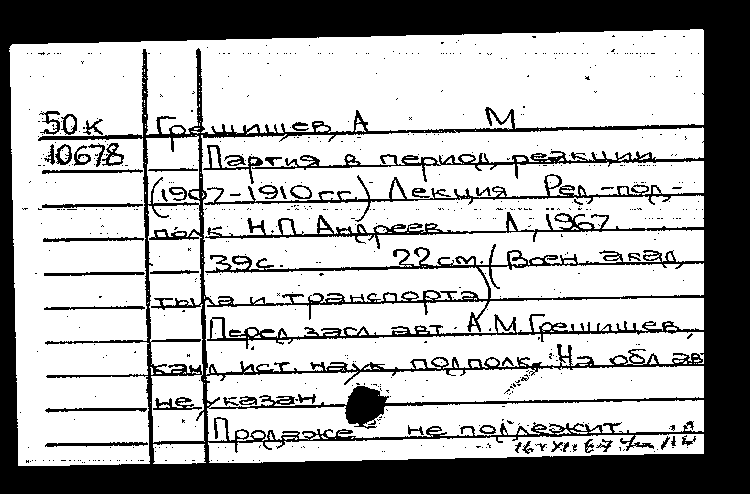 50к Грешишев, А М
10678 Партия в период реакции
(1907-1910 гг.) Лекция Ред.-под-
полк. Н.П. Андреев. Л., 1967.
39 с. 22 см. (Воен. акад.
тыла и транспорта)
Перед загл. авт. А.М. Грешишев,
канд. ист. наук, подполк. На обл. авт
не указан.
Продаже не подлежит.